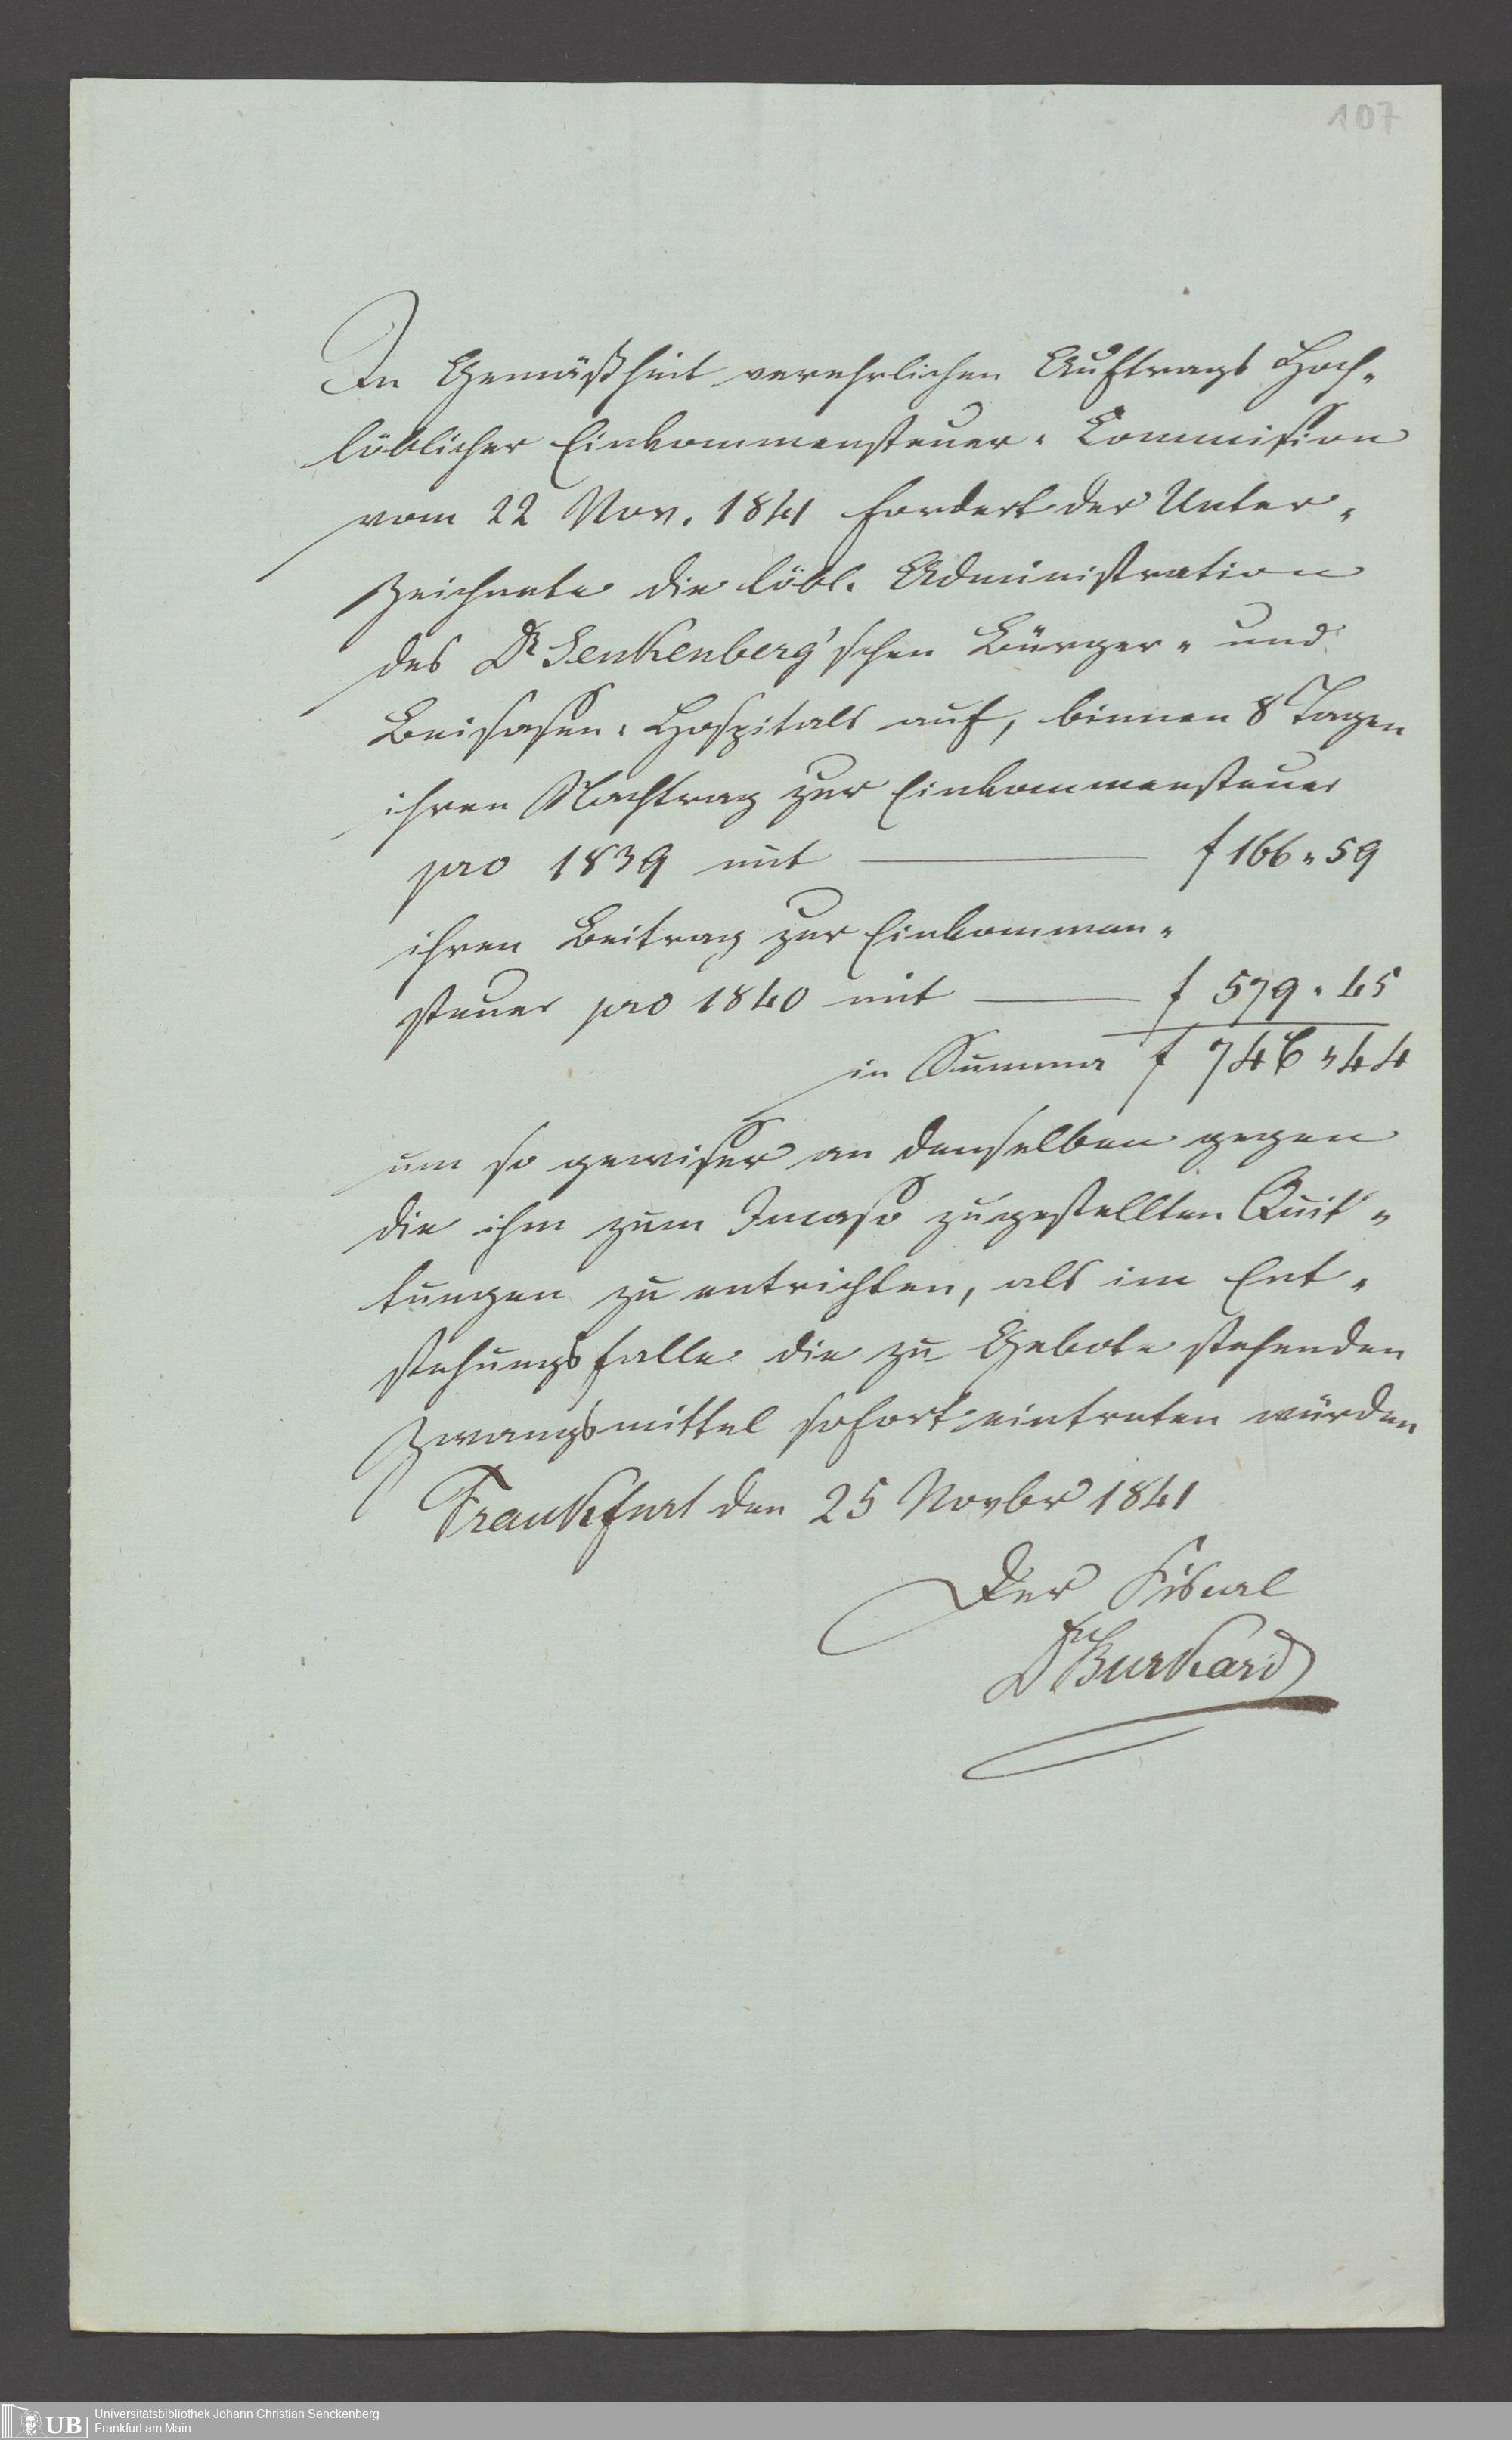 107
In Gemäßheit verehrlichen Auftrags Hoch„
löblicher Einkommensteuer„ Commission
vom 22 Nov. 1841 fordert der Unter„
zeichnete die löbl. Administration
des Dr Senkenberg'schen Bürger„ und
Beisassen„ Hospitals auf, binnen 8 Tagen
ihren Nachtrag zur Einkommensteuer
pro 1839 mit — f 166„59
ihren Beitrag zur Einkommen„
steuer pro 1840 mit — f 579„45
in Summa f 746„44
um so gewisser an denselben gegen
die ihm zum Incasso zugestellten Quit„
tungen zu entrichten, als im Ent„
stehungsfalle die zu Gebote stehenden
Zwangsmittel sofort eintreten würden
Frankfurt den 25 Novbr 1841
Der Fiscal
Dr Burkard
UB Universitätsbibliothek Johann Christian Senckenberg
Frankfurt am Main